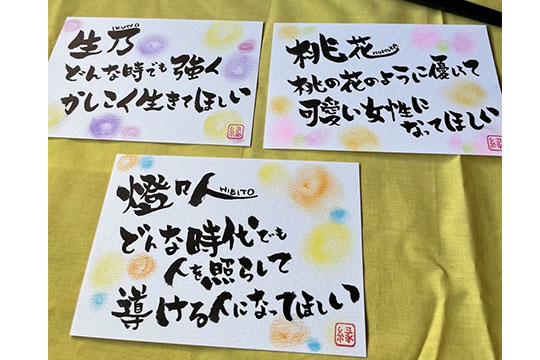 生乃
IKUNO
どんな時でも強く
かしこく生きてほしい
縁
桃花
MOMOKA
桃の花のように優しくて
可愛い女性に
なってほしい
縁
燈々人
HIBITO
どんな時代でも
人を照らして
導ける人になってほしい
縁